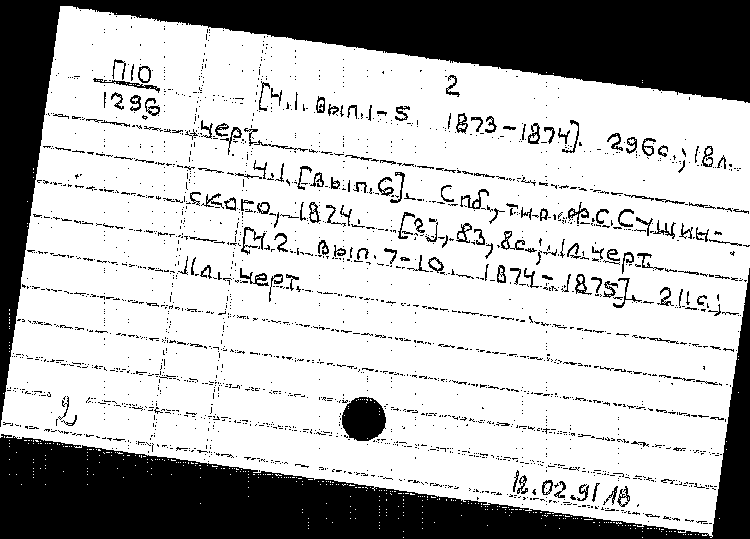 2
П10
1296
[Ч.1. Вып.1-5. 1873-1874]. 296с.; 18л.
черт.
Ч.1. [Вып.6]. Спб., тип. Ф.С.Сущин-
ского, 1874. [2], 83, 8с.; 1л. черт.
[Ч.2. Вып.7-10. 1874-1875]. 211с.;
11л. черт.
2
12.02.91 18.